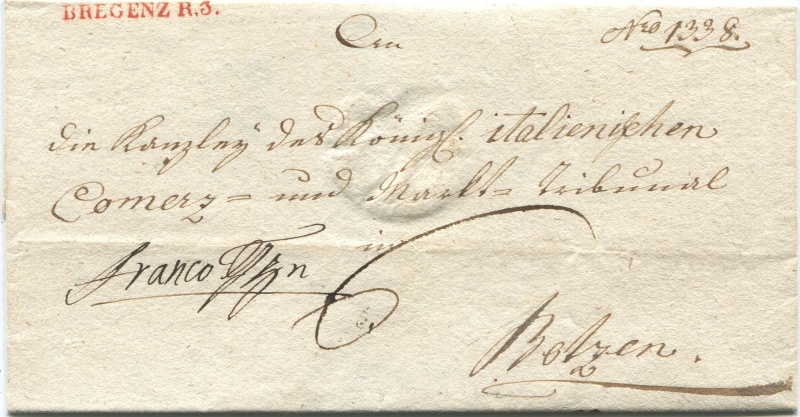 BREGENZ R.3.
An Nro 1338.
die Kanzley des Königl. italienischen
Comerz= und Markt= Tribunal
in
franco
Botzen.